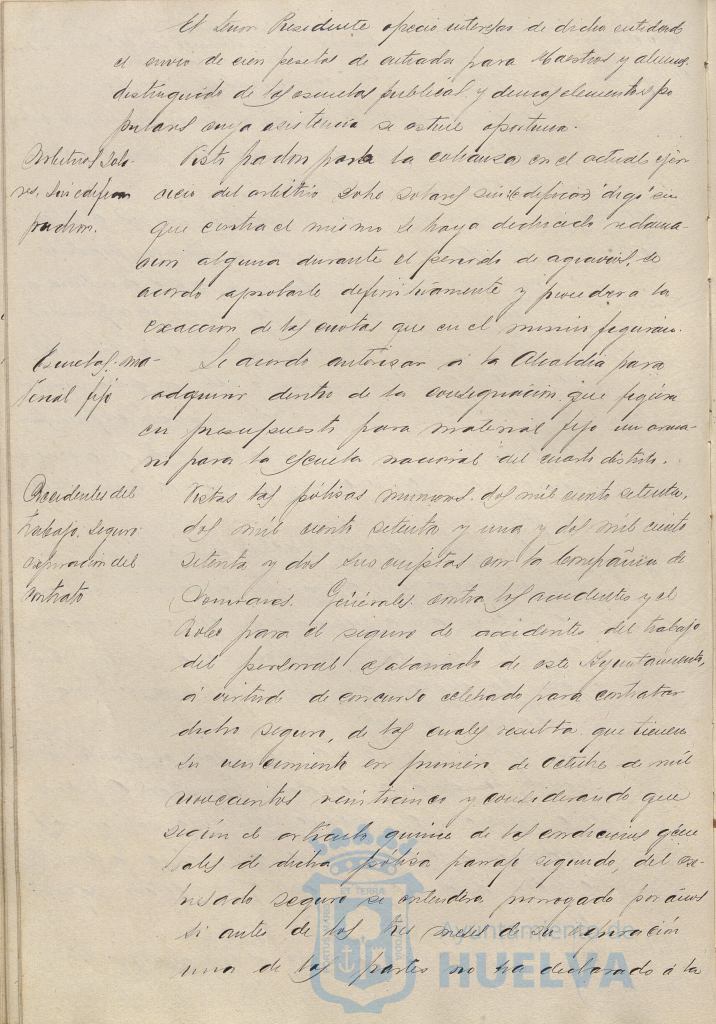 El Señor Presidente opeció interesar de dicha entidad
el envio de cien pesetas de entrada para Maestros y alumnos
distinguido de las escuelas publicas y demas elementos po
pulares cuya asistencia se estime oportuna.
Arbitrios sola-
res sin edificar
padron.
Visto padron para la cobranza en el actual ejer
cicio del arbitrio sobre solares sin edificar digo sin
que contra el mismo se haya deducido reclama-
cion alguna durante el periodo de agravios, se
acordó aprobarle definitivamente y proceder a la
exaccion de las cuotas que en el mismo figuran.
Escuelas. ma-
terial fijo
Se acordó autorizar á la Alcaldía para
adquirir dentro de la consignacion que figura
en presupuesto para material fijo un arma-
rio para la escuela nacional del cuarto distrito.
Accidentes del
trabajo. seguro
expiración del
contrato
Vistas las pólizas numeros dos mil ciento setenta,
dos mil ciento setenta y una y dos mil ciento
setenta y dos suscriptas con la Compañia de
Generales contra los accidentes y el
Robo para el seguro de accidentes del trabajo
del personal asalariado de este Ayuntamiento,
á virtud de concurso celebrado para contratar
dicho seguro, de las cuales resulta que tienen
su vencimiento en primero de octubre de mil
novecientos veinticinco y considerando que
según el articulo quince de las condiciones gene
rales de dicha póliza parrafo segundo, del ex-
presado seguro se entenderá prorrogado por años
si antes de los tres meses de su expiración
una de las partes no ha declarado á la
ET TERRA
Ayuntamiento de
HUELVA